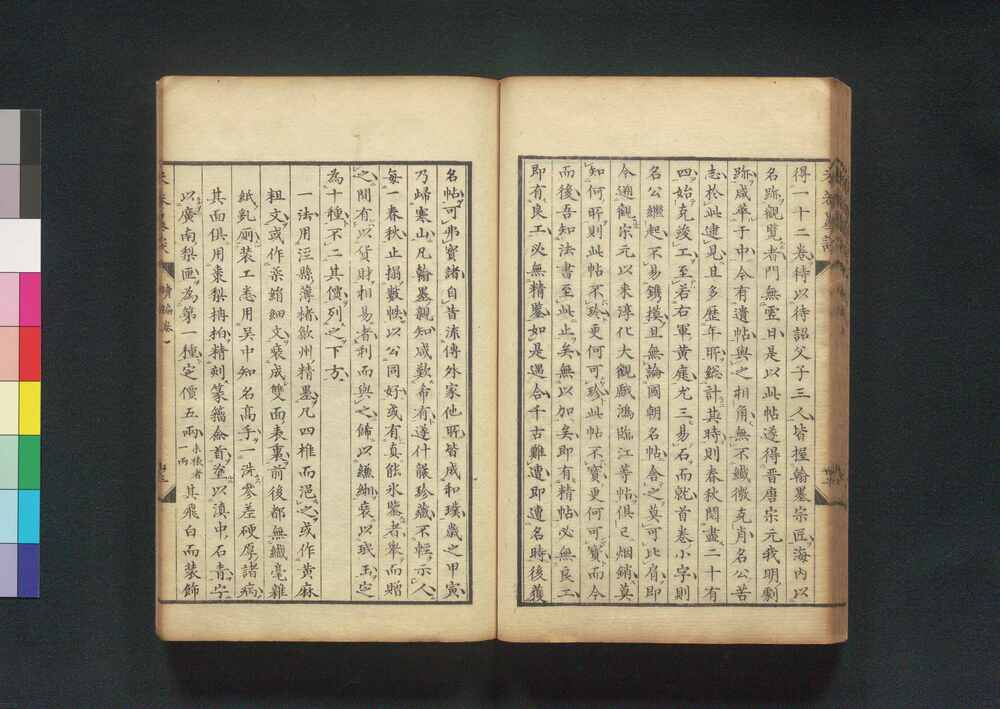 得一十二卷待以待詔父子三人皆握翰墨宗匠海內以
名跡觀覽者門無虛日是以此帖遂得晋唐宗元我明劇
跡咸萃于中今有遺帖與之相角無不纖微克肖名公苦
志於此逮見且多歷年所総計其時則春秋閲盡二十有
四始克竣工至若右軍黃庭尤三易石而就首卷小字則
名公繼起不易鐫摸且無論國朝名帖舍之莫可比肩即
今遡觀宗元以来淳化大觀戲鴻臨江等帖俱已烟銷莫
知何所則此帖不珍更何可珍此帖不寶更何可寶而今
而後吾知法書至此止矣無以加矣即有精帖必無良工
即有良工必無精鑒如是遇合千古難遭即遭名時後獲
名帖可弗寶諸自昔流傳外家他所皆成和璞歲之甲寅
乃歸寒山凡翰墨親知咸歎希有遂什襲珍藏不輕示人
每一春秋止搨數帙以公同好或有真能氷鑒者舉而贈
之間有以貨財相易者利而與之餙以縑緗裒以玳玉定
為十種不二其價列之下方
一法用涇縣薄楮歙州精墨凡四椎而浥之或作黃麻
粗文或作柒綃細文裒成雙面表裏前後都無纖毫雜
紙乳厠装工悉用吳中知名高手一洗參差硬厚諸病
其面俱用棗梨摶拍精刻篆籀僉首塗以滇中石青字
以廣南梨匣為第一種定價五兩未裱者一兩其飛白而装飾